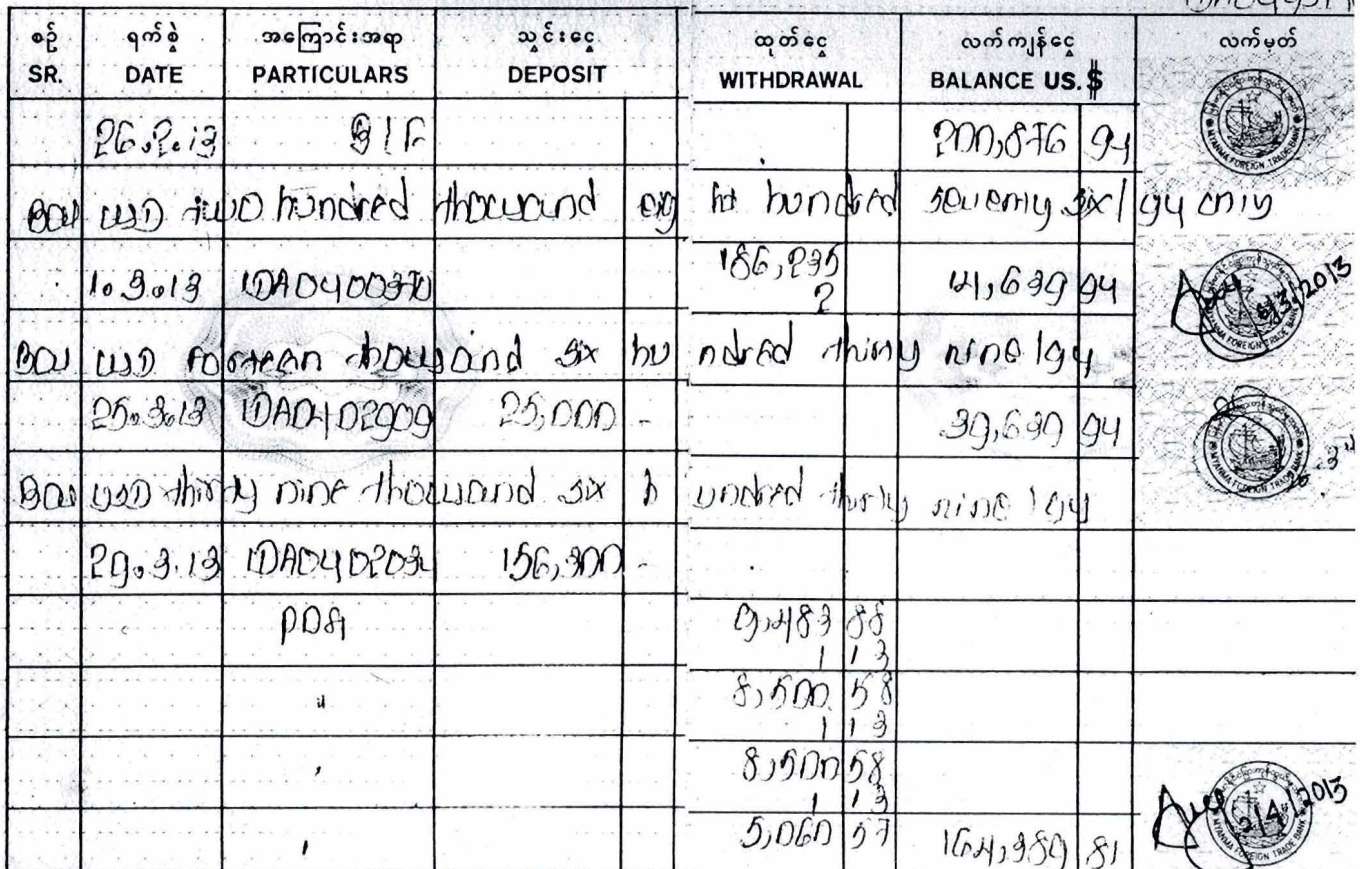 စဉ် ရက်စွဲ အကြောင်းအရာ သွင်းငွေ ထုတ်ငွေ လက်ကျန်ငွေ လက်မှတ်
SR. DATE PARTICULARS DEPOSIT WITHDRAWAL BALANCE US.$
26.2.13 B/F 200,876 94
MYANMA FOREIGN TRADE BANK
Bal USD two hundred thousand eight hundred seventy six/94 only
1.3.13 IDA0400370 186,235 14,639 94
2
6/3/2013
MYANMA FOREIGN TRADE BANK
Bal USD fourteen thousand six hundred thirty nine/94
25.3.13 IDA0402909 25,000 - 39,639 94
MYANMA FOREIGN TRADE BANK
Bal USD thirty nine thousand six hundred thirty nine/94
29.3.13 156,300 -
9,483 88
1 13
" 8,500 58
1 13
" 8,500 58
1 13
" 5,060 57 164,389 81
2/4/2013
MYANMA FOREIGN TRADE BANK